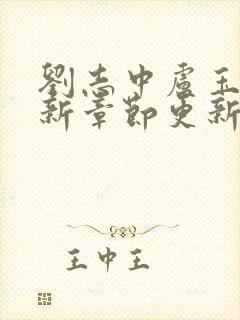 劉志中盧玉
新章節更新
王中王